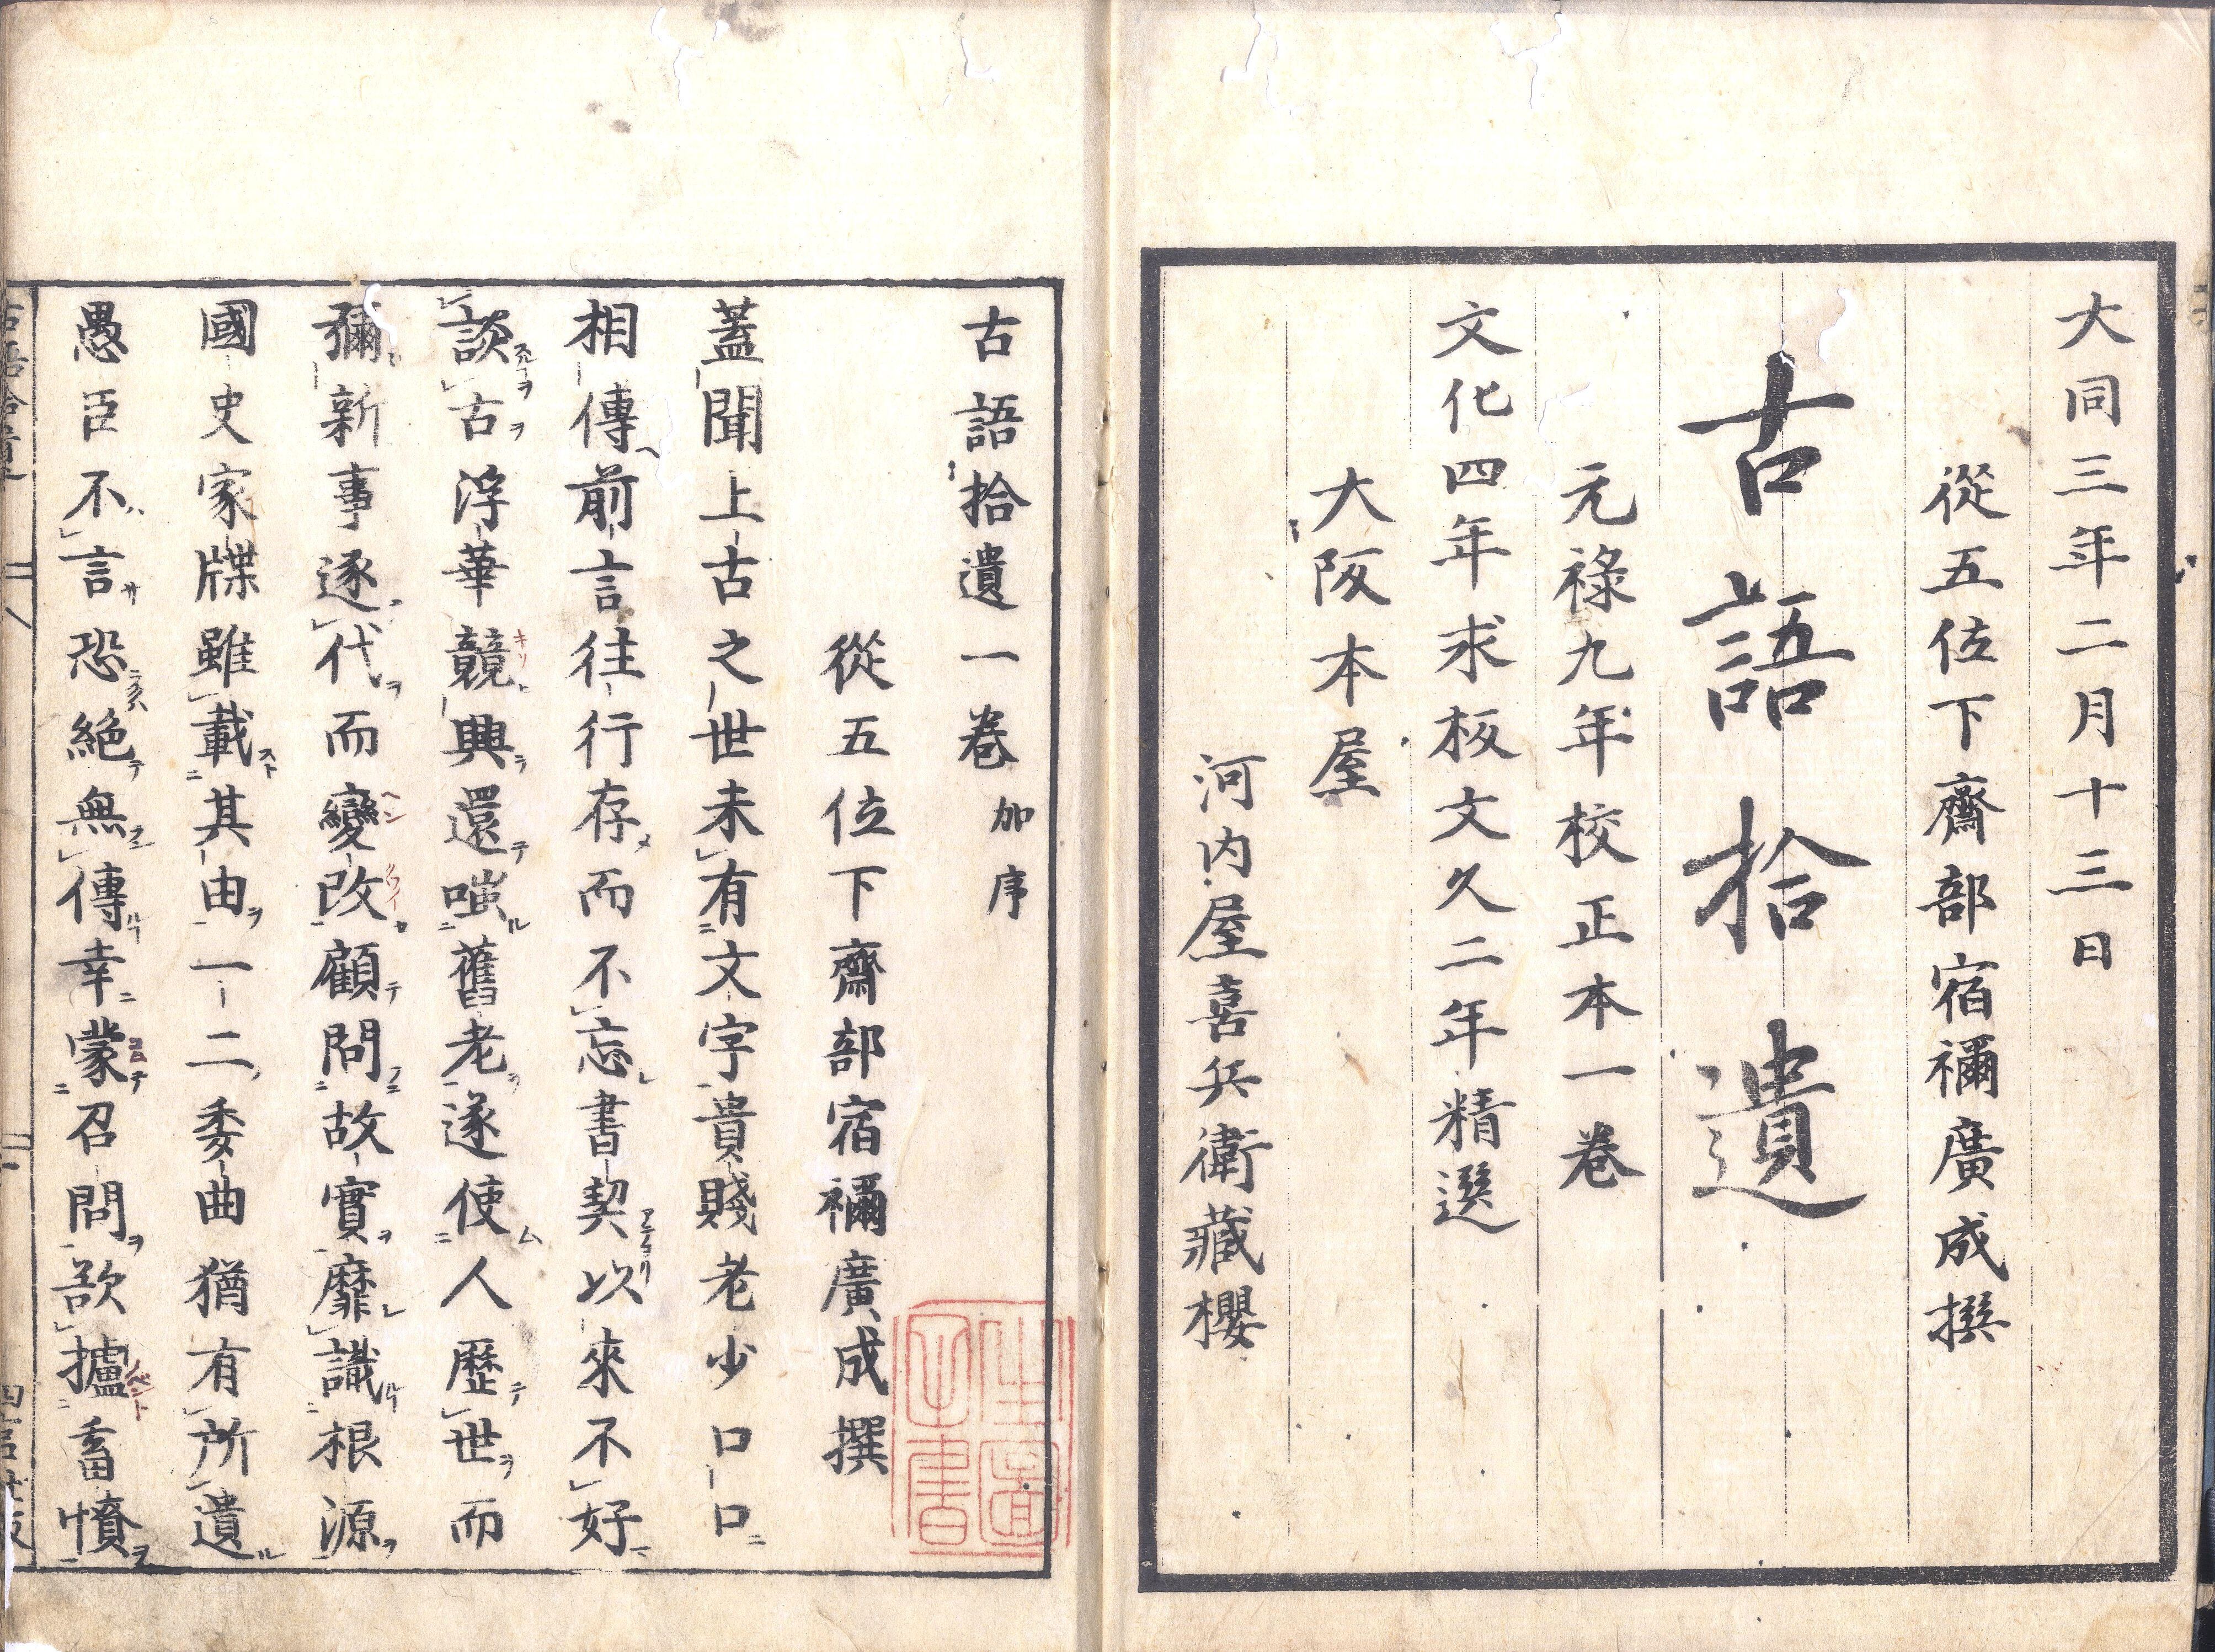 大同三年二月十三日
從五位下齋部宿禰廣成撰
古語拾遺
元祿九年校正本一卷
文化四年求板文久二年精選
大阪本屋
河内屋喜兵衛藏櫻
古語拾遺一卷 加序
從五位下齋部宿禰廣成撰
蓋聞上古之世未有文字貴賤老少口口
相傳前言往行存而不忘書契以來不好
談古浮華競興還嗤舊老遂使人歷世而
彌新事逐代而變改顧問故實靡識根源
國史家牒雖載其由一二委曲猶有所遺
愚臣不言恐絕無傳幸蒙召問欲攄畜憤